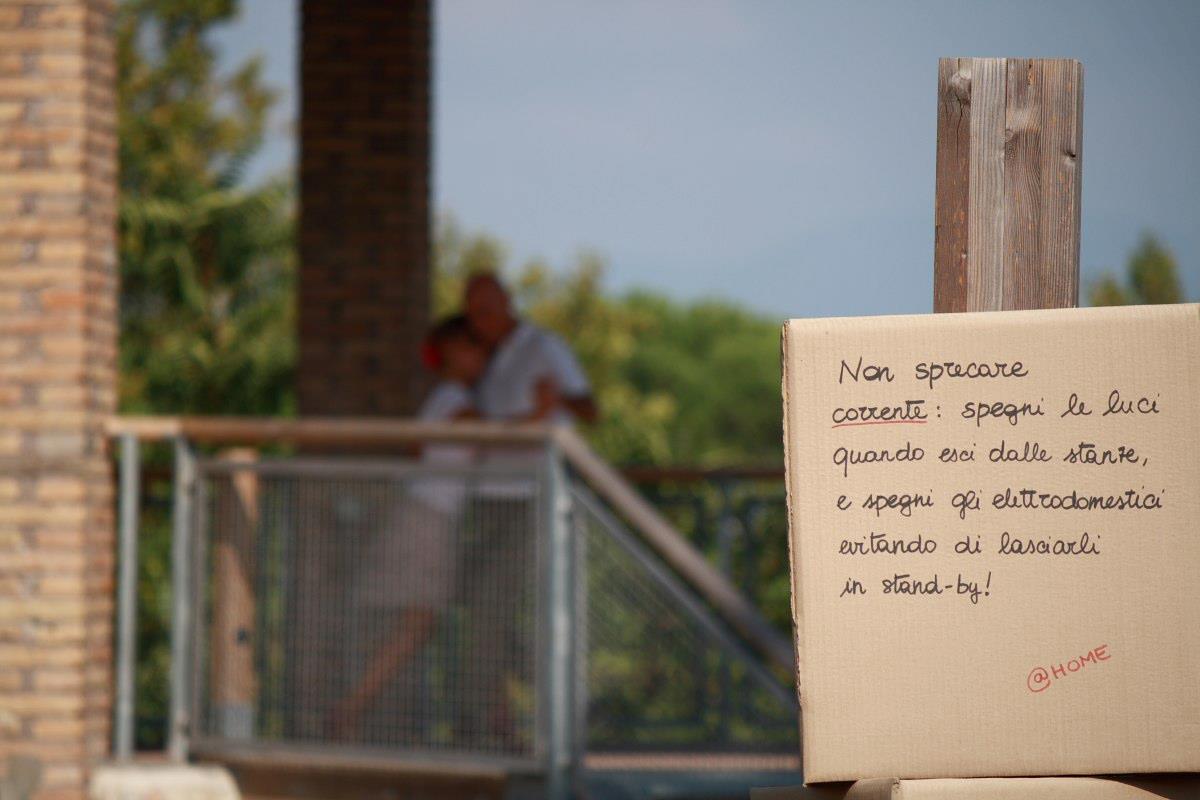 Non sprecare
corrente: spegni le luci
quando esci dalle stanze,
e spegni gli elettrodomestici
evitando di lasciarli
in stand-by!
@HOME